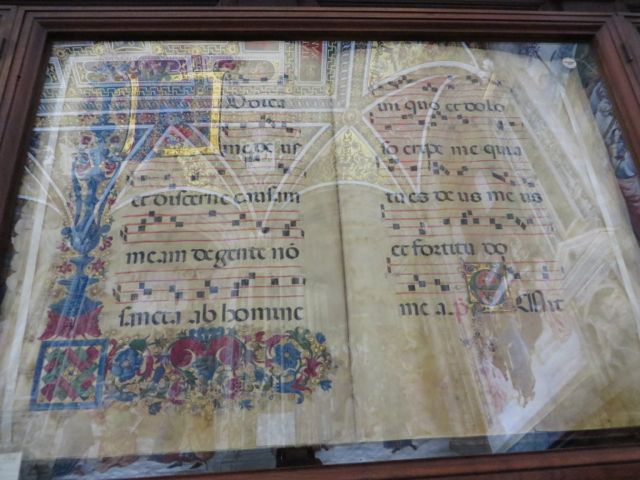 IVdica
me de us
et discerne causam
me am de gente nō
sancta ab homine
ini quo et dolo
so eripe me quia
tu es de us me us
et fortitu do
me a. p̄. Emit